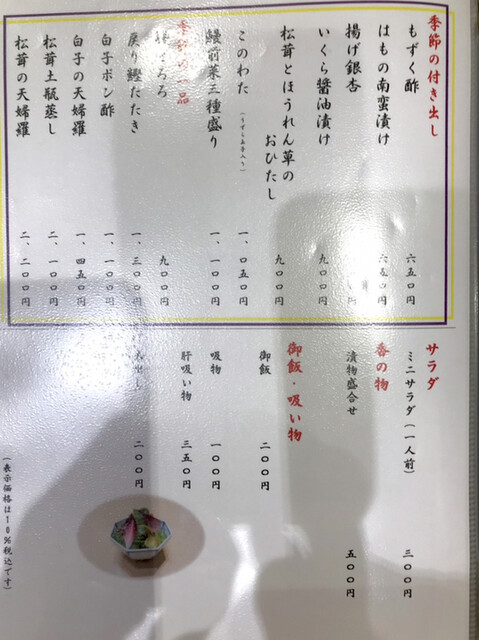 季節の付き出し
もずく酢 六五〇円
はもの南蛮漬け 六五〇円
揚げ銀杏
いくら醤油漬け 九〇〇円
松茸とほうれん草の
おひたし 九〇〇円
このわた（うずら玉子入り） 一、〇五〇円
鰻前菜三種盛り 一、一〇〇円
一品
とろろ 九〇〇円
戻り鰹たたき 一、三〇〇円
白子ポン酢 一、一〇〇円
白子の天婦羅 一、四五〇円
松茸土瓶蒸し 二、一〇〇円
松茸の天婦羅 二、二〇〇円
サラダ
ミニサラダ（一人前） 三〇〇円
香の物
漬物盛合せ 五〇〇円
御飯・吸い物
御飯 二〇〇円
吸物 一〇〇円
肝吸い物 三五〇円
出し 二〇〇円
（表示価格は１０％税込です）